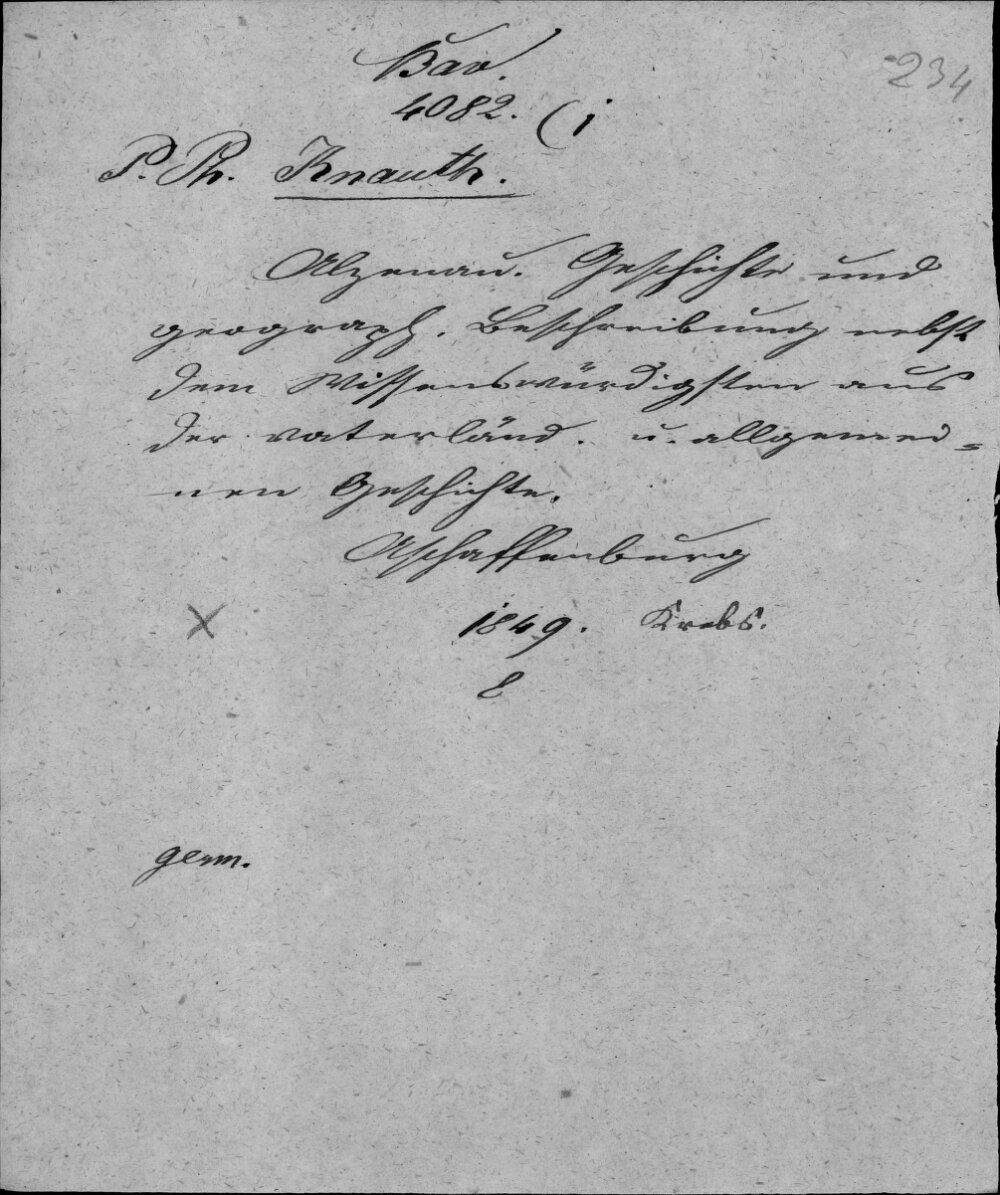 Bav.
234
4082. (i
P. Ph. Knauth.
Alzenau. Geschichte und
geograph. Beschreibung nebst
dem Wissenswürdigsten aus
der vaterländ. u. allgemei=
nen Geschichte.
Aschaffenburg
X
1849. Krebs.
8
germ.